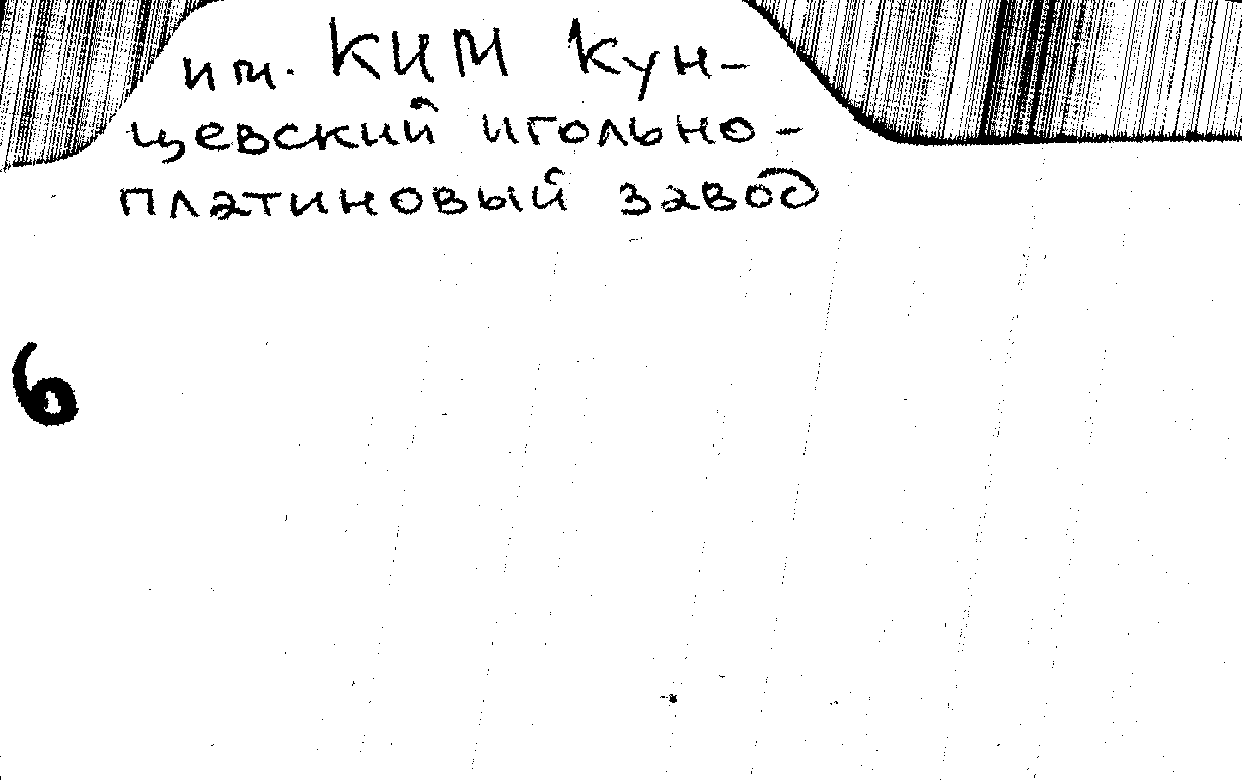 им. КИМ Кун-
цевский игольно-
платиновый завод
6